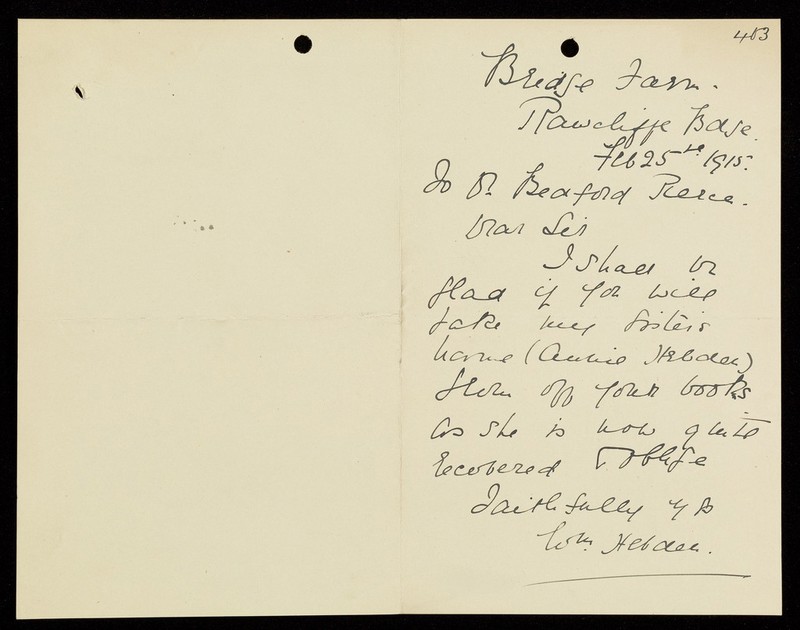 403
Bridge Farm.
Rawcliffe Bdge.
Feb 25th 1915.
To Dr Bedford Pierce.
Dear Sir
I shall be
glad if you will
take my sister's
name (Annie Hebden)
from off your books
as she is now quite
recovered & oblige
Faithfully yrs
Wm. Hebden.